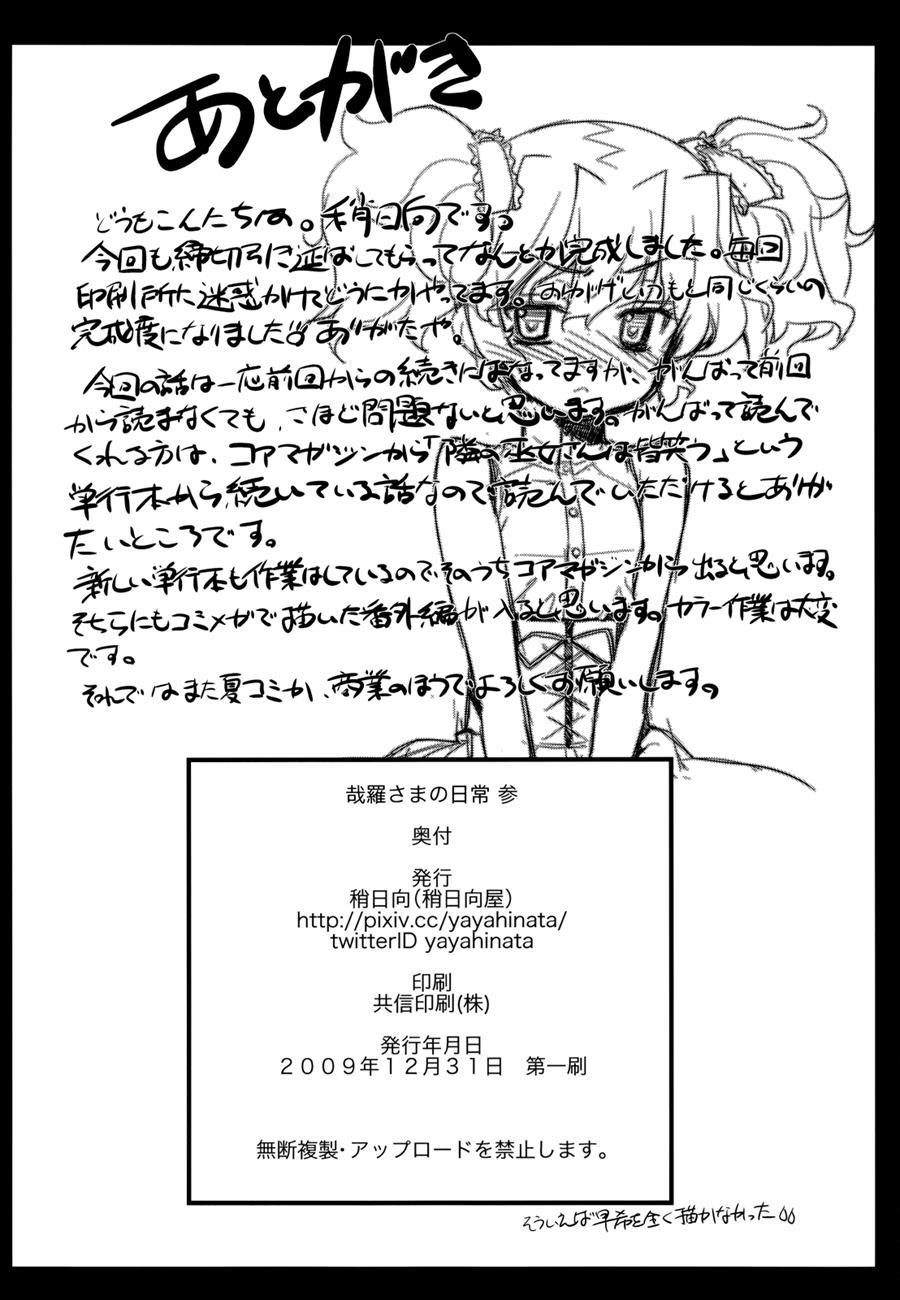 あとがき
どうもこんにちは。稍日向です。
今回も締切引き延ばしてもらってなんとか完成しました。毎回
印刷所に迷惑かけてどうにかやってます。おかげでいつもと同じくらいの
完成度になりました。ありがたや。
今回の話は一応前回からの続きにはなってますが、がんばって前回
から読まなくても、さほど問題ないと思います。がんばって読んで
くれる方は、コアマガジンから「隣の巫女さんは皆笑う」という
単行本から続いている話なので読んでいただけるとありが
たいところです。
新しい単行本も作業はしているのでそのうちコアマガジンから出ると思います。
そちらにもコミメガで描いた番外編が入ると思います。カラー作業は大変
です。
それではまた夏コミか、商業のほうでよろしくお願いします。
哉羅さまの日常 参
奥付
発行
稍日向(稍日向屋)
http://pixiv.cc/yayahinata/
twitterID yayahinata
印刷
共信印刷(株)
発行年月日
２００９年１２月３１日　第一刷
無断複製･アップロードを禁止します。
そういえば早希を全く描かなかった